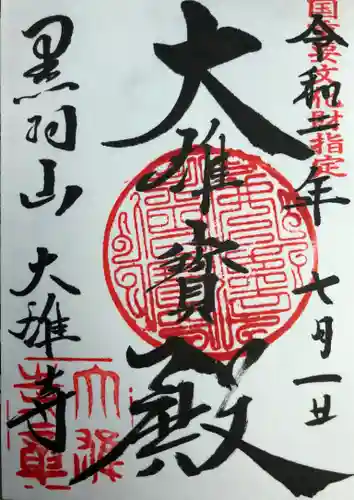 国重要文化財指定
令和二年 七月一日
大雄寳殿
黒羽山 大雄寺